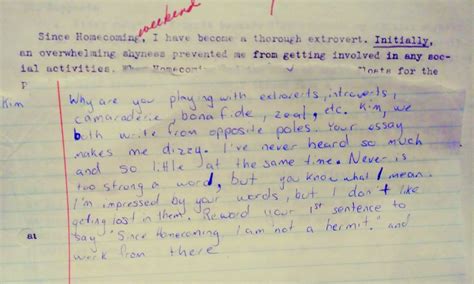 weekend
Since Homecoming, I have become a thorough extrovert. Initially,
an overwhelming shyness prevented me from getting involved in any soc-
ial activities. When Homecoming floats for the
Kim
Why are you playing with extroverts, introverts,
camaraderie, bona fide, zeal, etc. Kim, we
both write from opposite poles. Your essay
makes me dizzy. I've never heard so much
and so little at the same time. Never is
too strong a word, but you know what I mean.
I'm impressed by your words, but I don't like
getting lost in them. Reword your 1st sentence to
say "Since Homecoming I am not a hermit." and
work from there